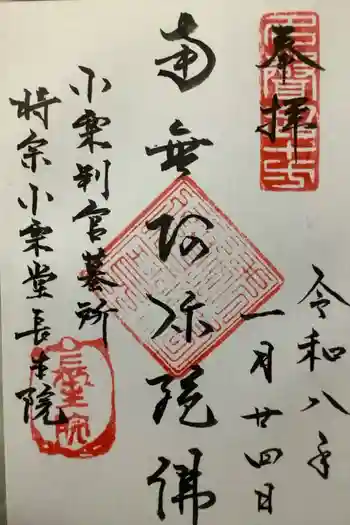 奉拝
令和八年
一月廿四日
南無阿弥陀佛
小栗判官墓所
時宗小栗堂長生院
長生院